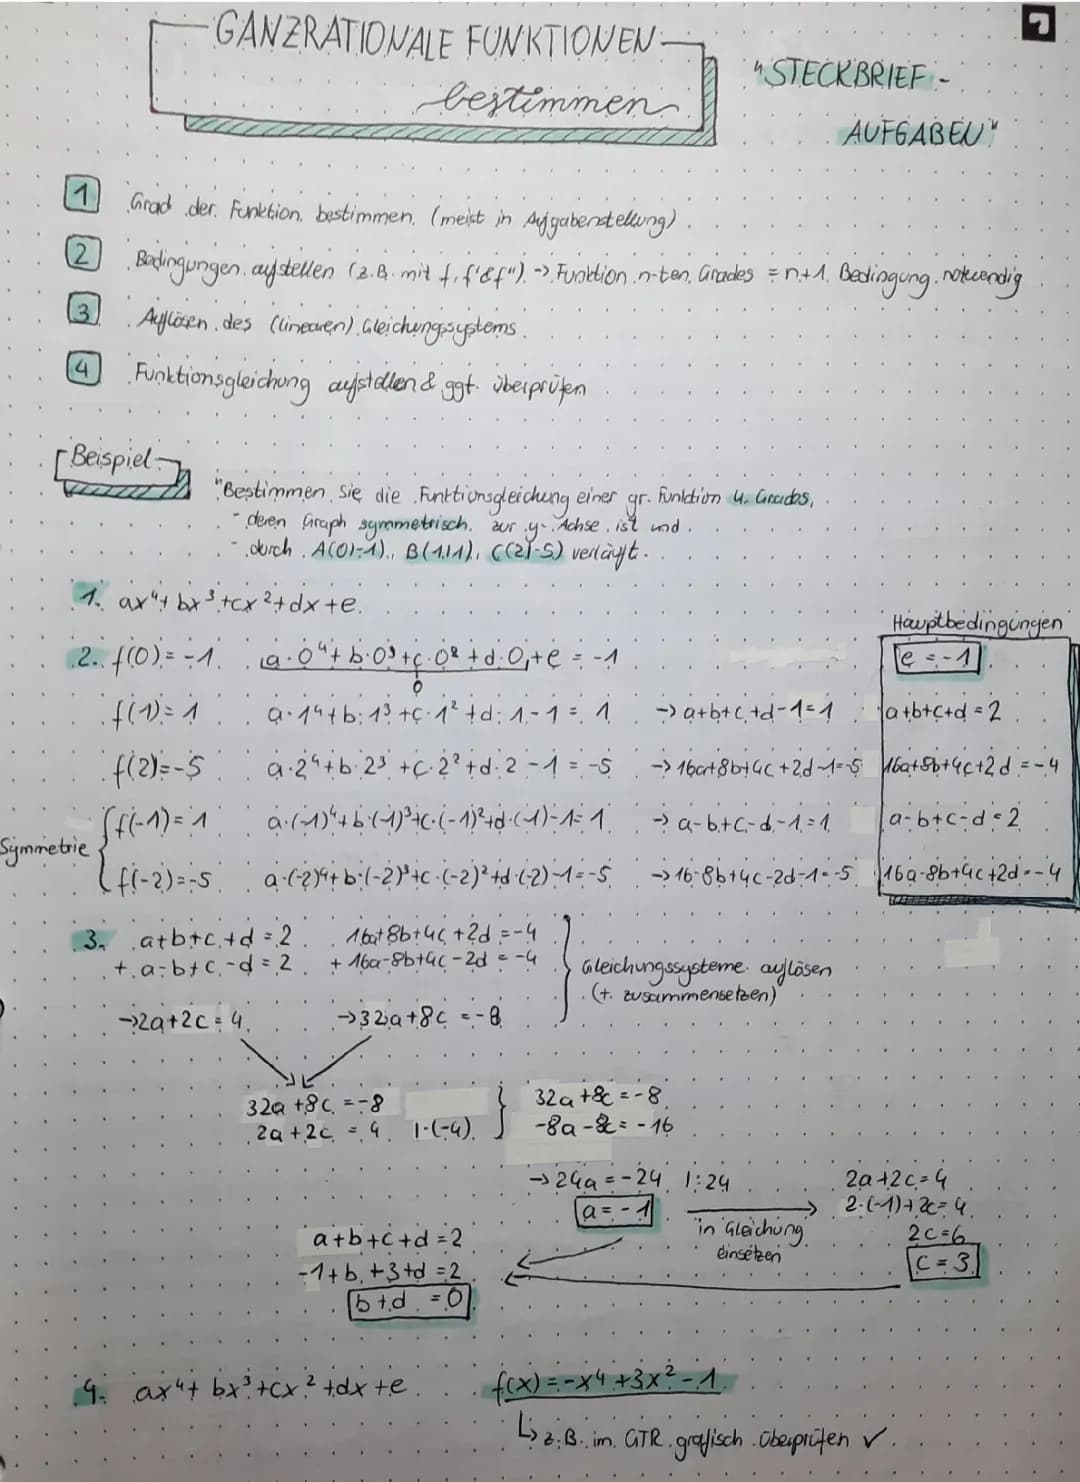 GANZRATIONALE FUNKTIONEN
bestimmen
"STECKBRIEF-
AUFGABEN"
1 Grad der Funktion bestimmen (meist in Aufgabenstellung)
2 Bedingungen aufstellen (z.B. mit f, f' & f") -> Funktion n-ten Grades = n+1 Bedingung notwendig
3 Auflösen des (linearen) Gleichungssystems
4 Funktionsgleichung aufstellen & ggf. überprüfen
Beispiel
"Bestimmen Sie die Funktionsgleichung einer gr. Funktion 4. Grades,
- deren Graph symmetrisch zur y-Achse ist und
- durch A(0|-1), B(1|1), C(2|-5) verläuft.
1. ax⁴+bx³+cx²+dx+e
Hauptbedingungen
2. f(0)=-1 a·0⁴+b·0³+c·0²+d·0+e = -1 e=-1
0
f(1)=1 a·1⁴+b·1³+c·1²+d·1-1=1 -> a+b+c+d-1=1 a+b+c+d=2
f(2)=-5 a·2⁴+b·2³+c·2²+d·2-1=-5 -> 16a+8b+4c+2d-1=-5 16a+8b+4c+2d=-4
Symmetrie { f(-1)=1 a·(-1)⁴+b·(-1)³+c·(-1)²+d·(-1)-1=1 -> a-b+c-d-1=1 a-b+c-d=2
f(-2)=-5 a·(-2)⁴+b·(-2)³+c·(-2)²+d·(-2)-1=-5 -> 16-8b+4c-2d-1=-5 16a-8b+4c+2d=-4
3. a+b+c+d=2 16a+8b+4c+2d=-4
+ a-b+c-d=2 + 16a-8b+4c-2d=-4 } Gleichungssysteme auflösen
(+ zusammensetzen)
->2a+2c=4 ->32a+8c=-8
32a+8c=-8 } 32a+8c=-8
2a+2c=4 |·(-4) -8a-8c=-16
->24a=-24 |:24 2a+2c=4
a=-1 in Gleichung einsetzen 2·(-1)+2c=4
a+b+c+d=2 2c=6
-1+b+3+d=2 c=3
b+d=0
4. ax⁴+bx³+cx²+dx+e f(x)=-x⁴+3x²-1
↳ z.B. im GTR grafisch überprüfen ✓